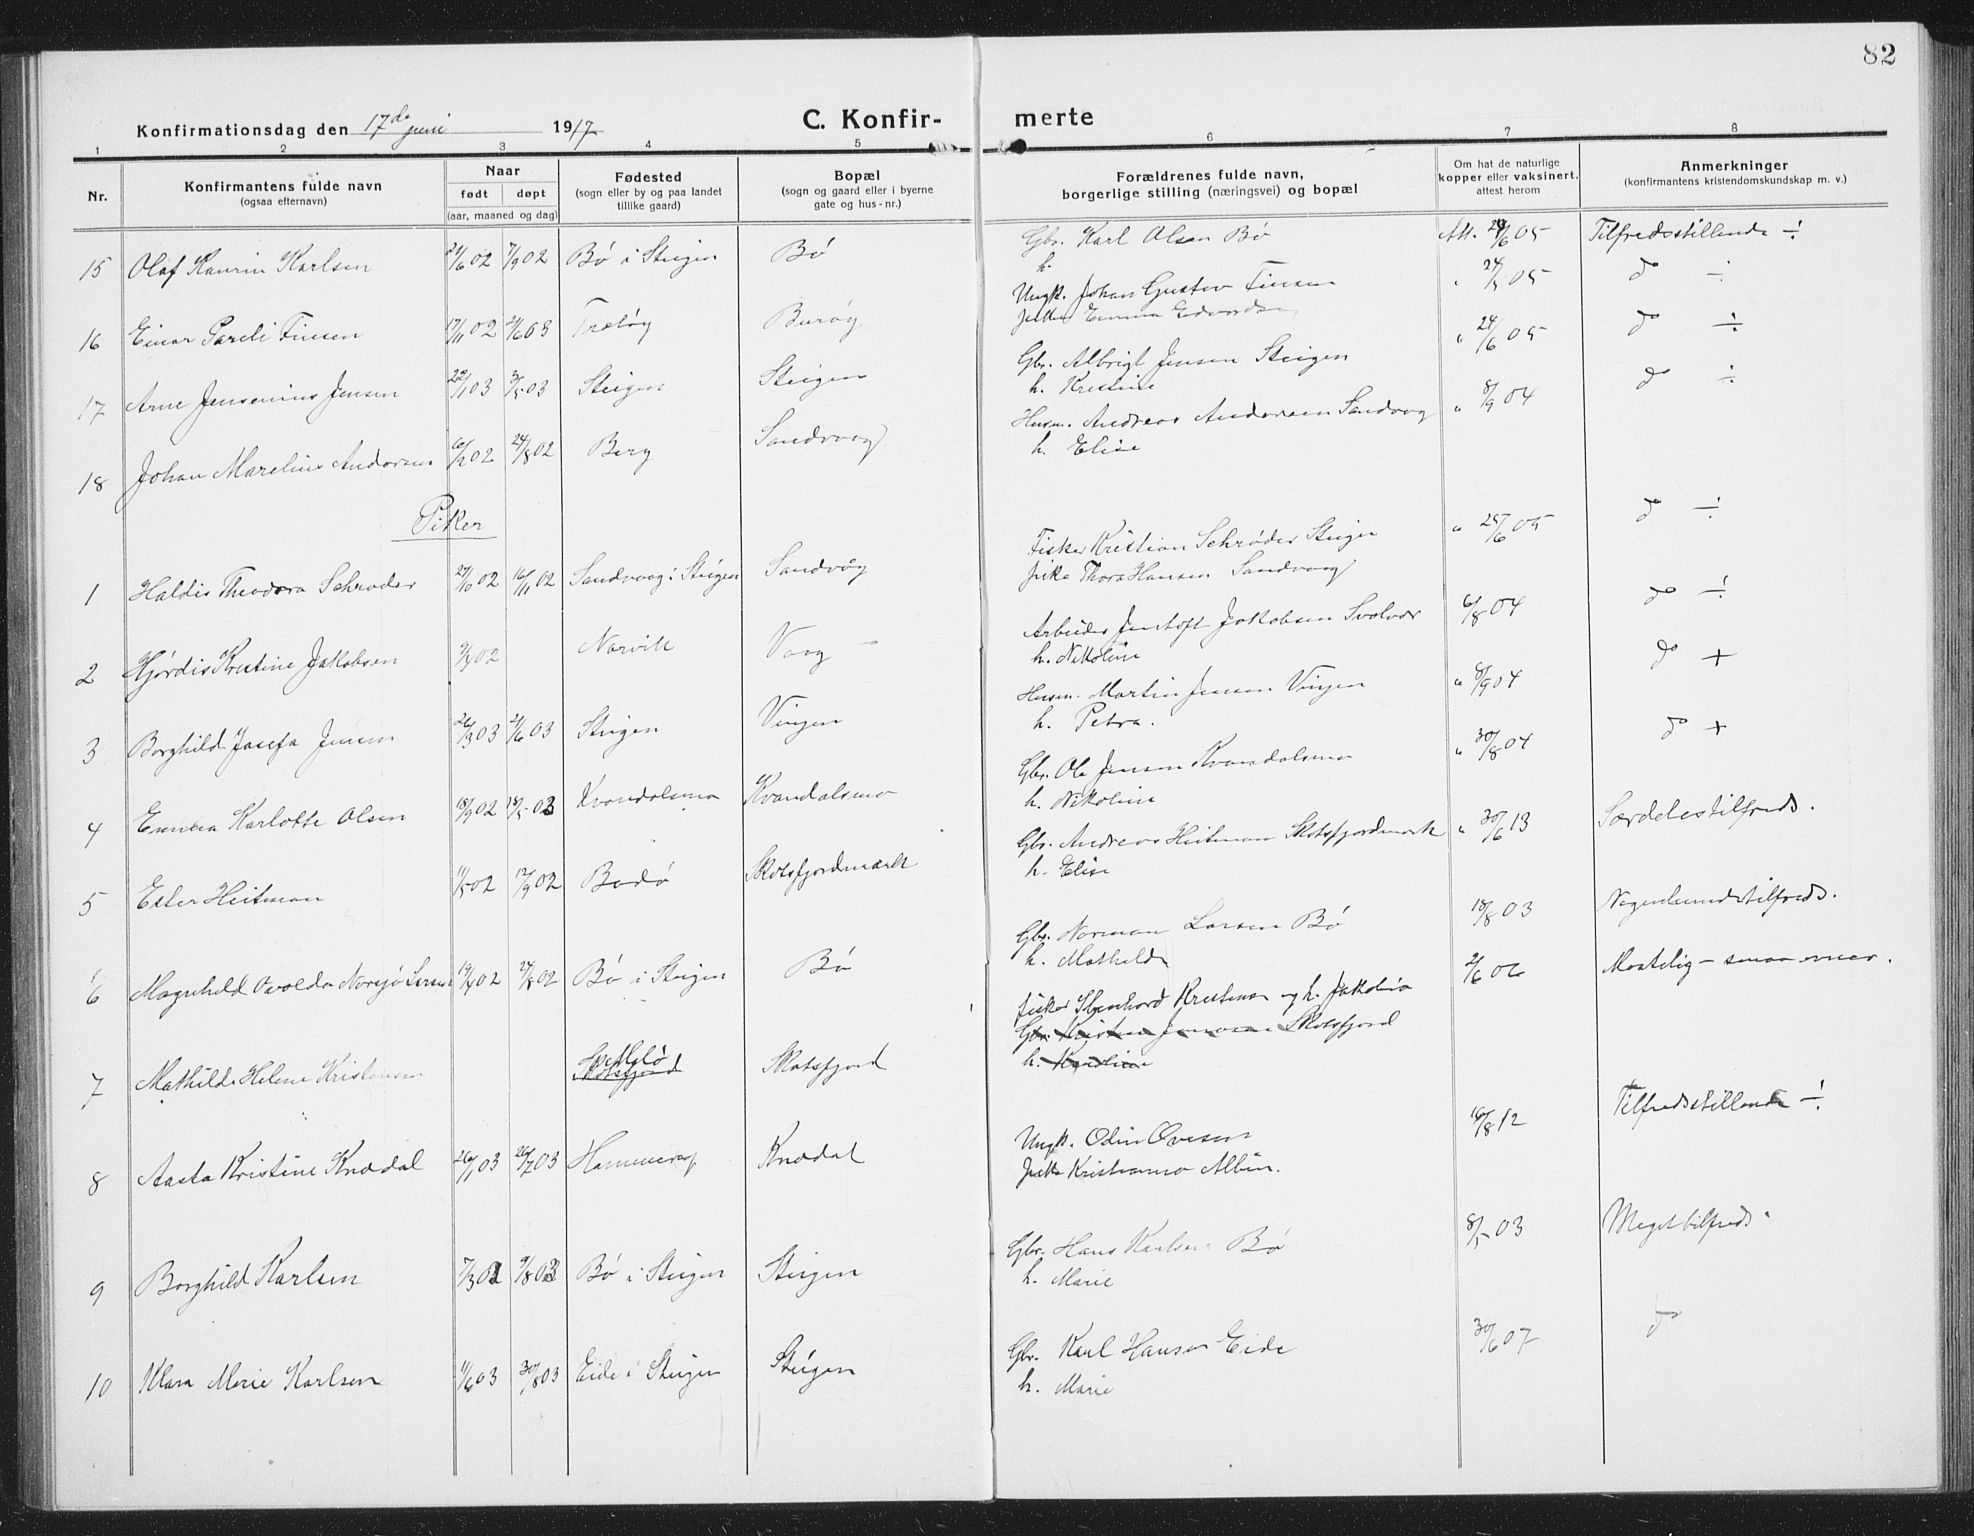 82
Konfirmationsdag den 17de juni 1917
C. Konfir- merte
1 2 3 4 5 6 7 8
Nr.
Konfirmantens fulde navn
(ogsaa efternavn)
Naar
født døpt
(aar, maaned og dag)
Fødested
(sogn eller by og paa landet
tillike gaard)
Bopæl
(sogn og gaard eller i byerne
gate og hus-nr.)
Forældrenes fulde navn,
borgerlige stilling (næringsvei) og bopæl
Om hat de naturlige
kopper eller vaksinert,
attest herom
Anmerkninger
(konfirmantens kristendomskundskap m. v.)
15 Olaf Kaurin Karlsen 21/6 02 7/9 02 Bø i Steigen Bø Gbr. Karl Olsen Bø Att. /6 05 Tilfredsstillende ÷
h.
16 Einar Pareli Finsen 17/11 02 21/6 03 Burøy Ungk. Johan Gustav Finsen " 24/5 05 do ÷
Emma Edvardsen
17 Arne Jensenius Jensen 22/1 03 3/5 03 Steigen Steigen Gbr. Albrigt Jensen Steigen " 24/6 05 do ÷
h. Kristine
18 Johan Marelius Andersen 6/2 02 24/8 02 Berg Sandvaag Husm. Andreas Andersen Sandvaag " 8/9 04 do ÷
h. Elise
Piker
1 Haldis Theodora Schrøder 27/10 02 16/11 02 Sandvaag i Steigen Sandvåg Fisker Kristian Schrøder Steigen " 25/6 05 do ÷
pike Thora Hansen Sandvaag
2 Hjørdis Kristine Jakobsen 9/4 02 Narvik Vaag Arbeider Jentoft Jakobsen Svolvær 6/8 04 do ÷
h. Nikoline
3 Borghild Josefa Jensen 26/3 03 21/6 03 Steigen Vingen Husm. Martin Jensen Vingen " 8/9 04 do +
h. Petra.
4 Emma Karlotte Olsen 18/9 02 18/5 03 Kvandalsmo Kvandalsmo Gbr. Ole Jensen Kvandalsmo " 30/8 04 do +
h. Nikoline
5 Ester Heitman 11/5 02 17/9 02 Bodø Skotsfjordmark Gbr. Andreas Heitman Skotsfjordmark " 30/6 13 Særdelestilfreds.
h. Elise
6 Magnhild Osvolda Norsjø Larsen 19/4 02 24/8 02 Bø i Steigen Bø Gbr. Norman Larsen Bø 18/8 03 Nogenlundetilfreds.
h. Mathilde
7 Mathilde Helene Kristensen Skotsfjord Skotsfjord fisker Kristensen og h. Jakobia 2/6 06 Maatelig – smaa evner.
Gbr. Kristen Skotsfjord
h. Karoline
8 Aasta Kristine Knædal 26/1 03 26/7 03 Hammerøy Knædal Ungk. Odin Ovesen 16/8 12 Tilfredsstillende ÷
pike Kristianna Albin.
9 Borghild Karlsen 7/3 02 9/8 03 Bø i Steigen Steigen Gbr. Hans Karlsen Bø 8/5 03 Meget tilfreds.
h. Marie
10 Klara Marie Karlsen 11/6 03 30/8 03 Eide i Steigen Steigen Gbr. Karl Hansen Eide 30/6 07 do
h. Marie